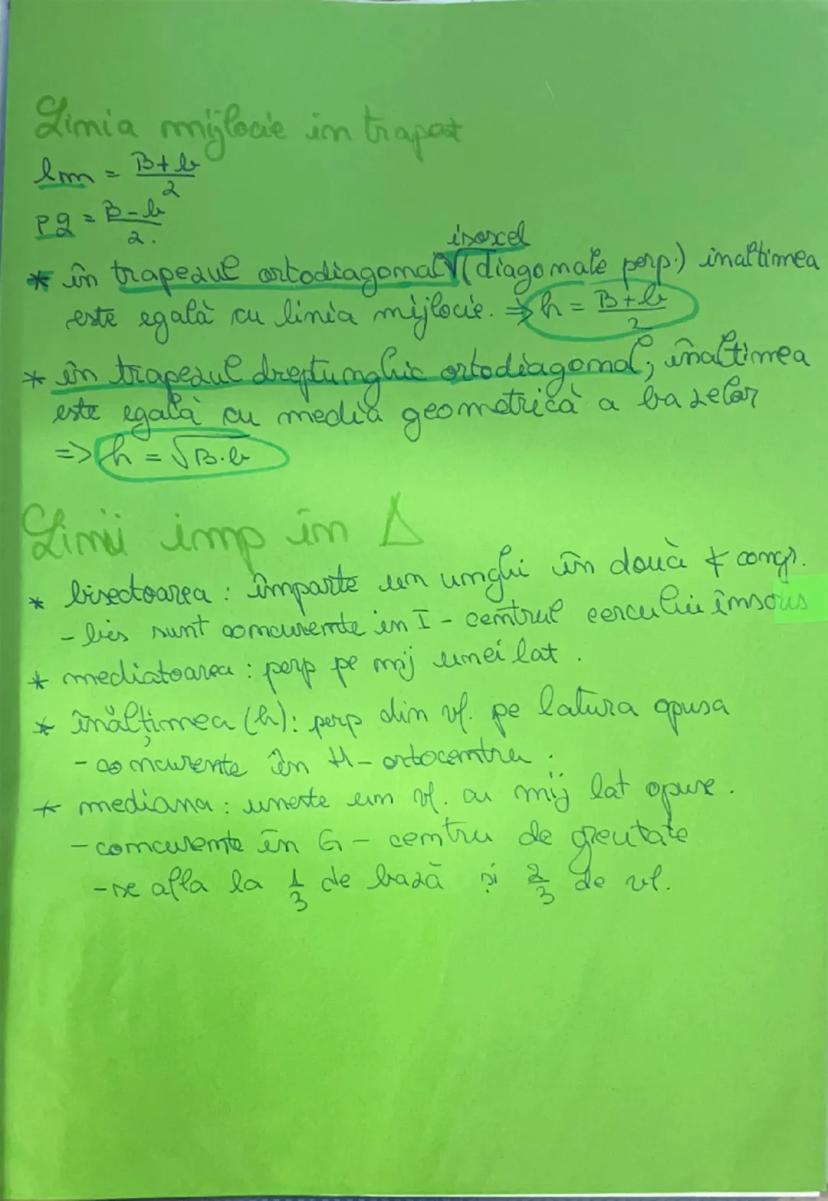 Linia mijlocie in trapez
lm = B+b/2
PQ = B-b/2.
isoscel
* în trapezul ortodiagonal √(diagonale perp.) inaltimea
este egală cu linia mijlocie. => h = B+b/2
* în trapezul dreptunghic ortodiagonal, înaltimea
este egală cu media geometrică a bazelor
=> h = √B·b
Linii imp în Δ
* bisectoarea : împarte un unghi în două ∢ congr.
- bis sunt concurente in I - centrul cercului înscris
* mediatoarea : perp pe mij unei lat .
* înălțimea (h): perp din vf. pe latura opusa
- concurente în H - ortocentru .
* mediana : uneste un vf. cu mij lat opuse .
- concurente în G - centru de greutate
- se afla la 1/3 de bază și 2/3 de vf.